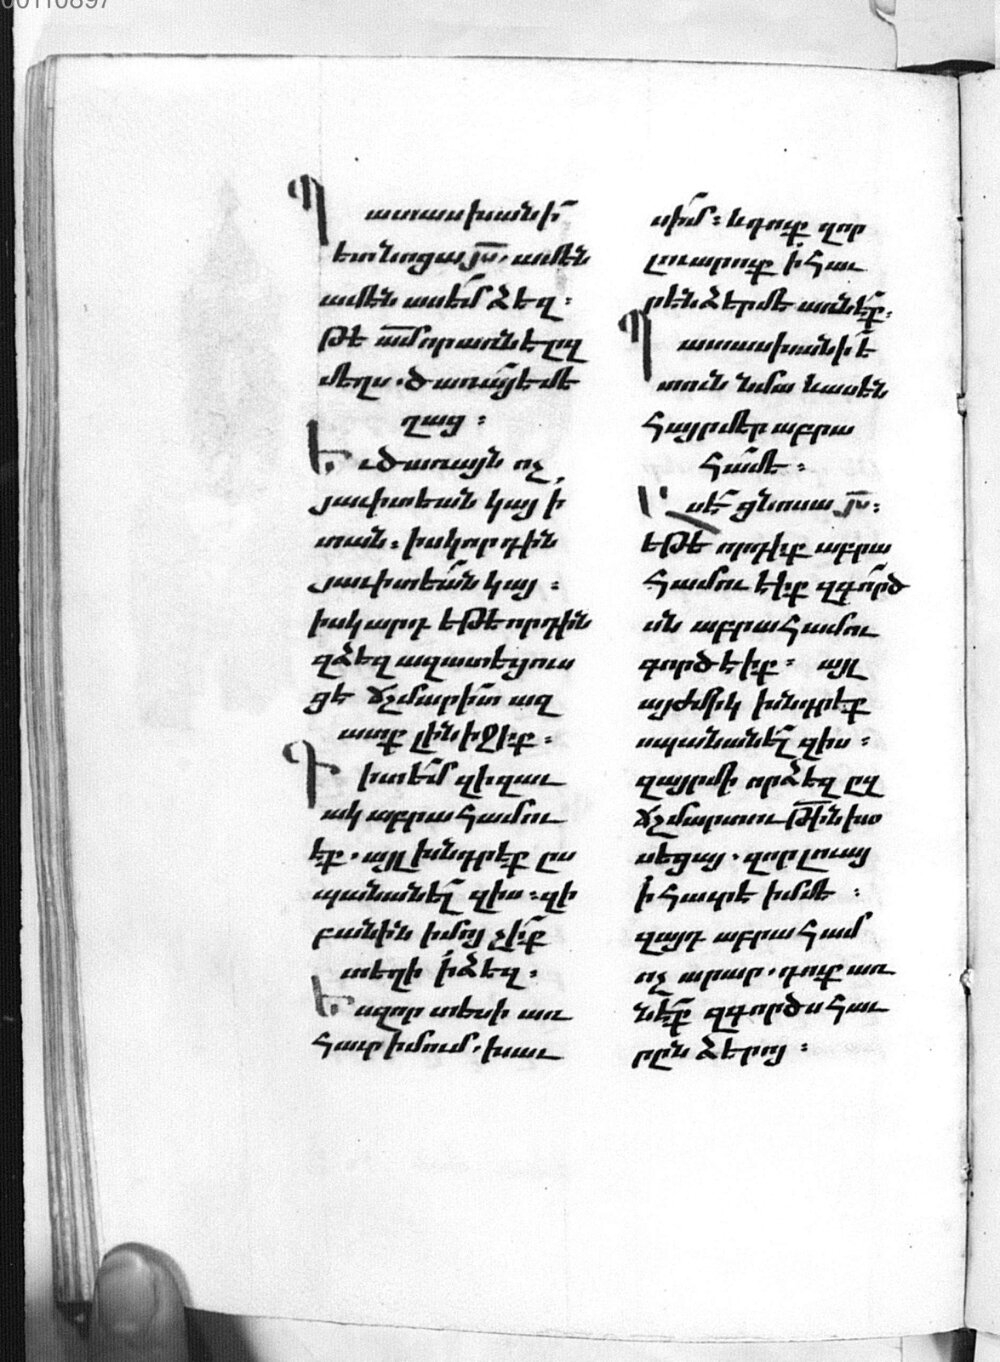 00110897
Պ ատասխանի՟
ետ նոցա յ՟ս. ամէն
ամէն ասեմ ձեզ։
թէ ա՟մ որ առնէ ըզ
մեղս. ծառայ է մե
ղաց։
Եւ ծառայն ոչ
յաւիտեան կայ ի
տան. իսկ որդին
յաւիտեան կայ։
իսկ արդ եթէ որդին
զձեզ ազատեցուս
ցէ ճշմարիտ ազ
ատք լինիջիք։
Գ իտեմ զի զաւ
ակ աբրահամու
էք. այլ խնդրէք ըս
պանանել զիս. զի
բանին իմոյ չիք
տեղի ի ձեզ։
Ես զոր տեսի առ
հաւր իմում. խաւ
սիմ. և դուք զոր
լուարուք ի հաւ
րէն ձերմէ առնէք.
Պ ատասխանի ե
տուն նմա և ասեն
հայր մեր աբրա
համ է։
Ա սէ ցնոսա յ՟ս։
եթէ որդիք աբրա
համու էիք զգործ
սն աբրահամու
գործէիք։ այլ
այժմիկ խնդրէք
սպանանել զիս։
զայր մի որ ձեզ ըզ
ճշմարտութի՟ն խօ
սեցայ. զոր լուայ
ի հաւրէ իմմէ։
զայդ աբրահամ
ոչ արար. դուք առ
նէք զգործս հաւ
րըն ձերոյ։